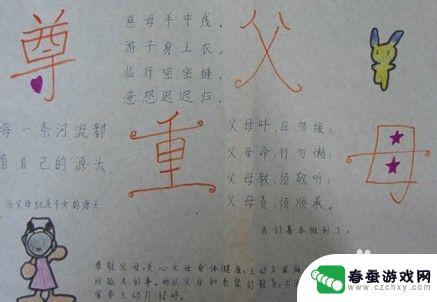 尊
慈母手中线,
游子身上衣,
临行密密缝,
意恐迟迟归.
父
每一条河流都
有自己的源头
而父母就是子女的源头
重
父母呼,应勿缓;
父母命,行勿懒;
父母教,须敬听;
父母责,须顺承。
我们基本做到了.
母
尊敬父母,关心父母身体健康,主动为家庭
春蚕游戏网
www.czchxy.com